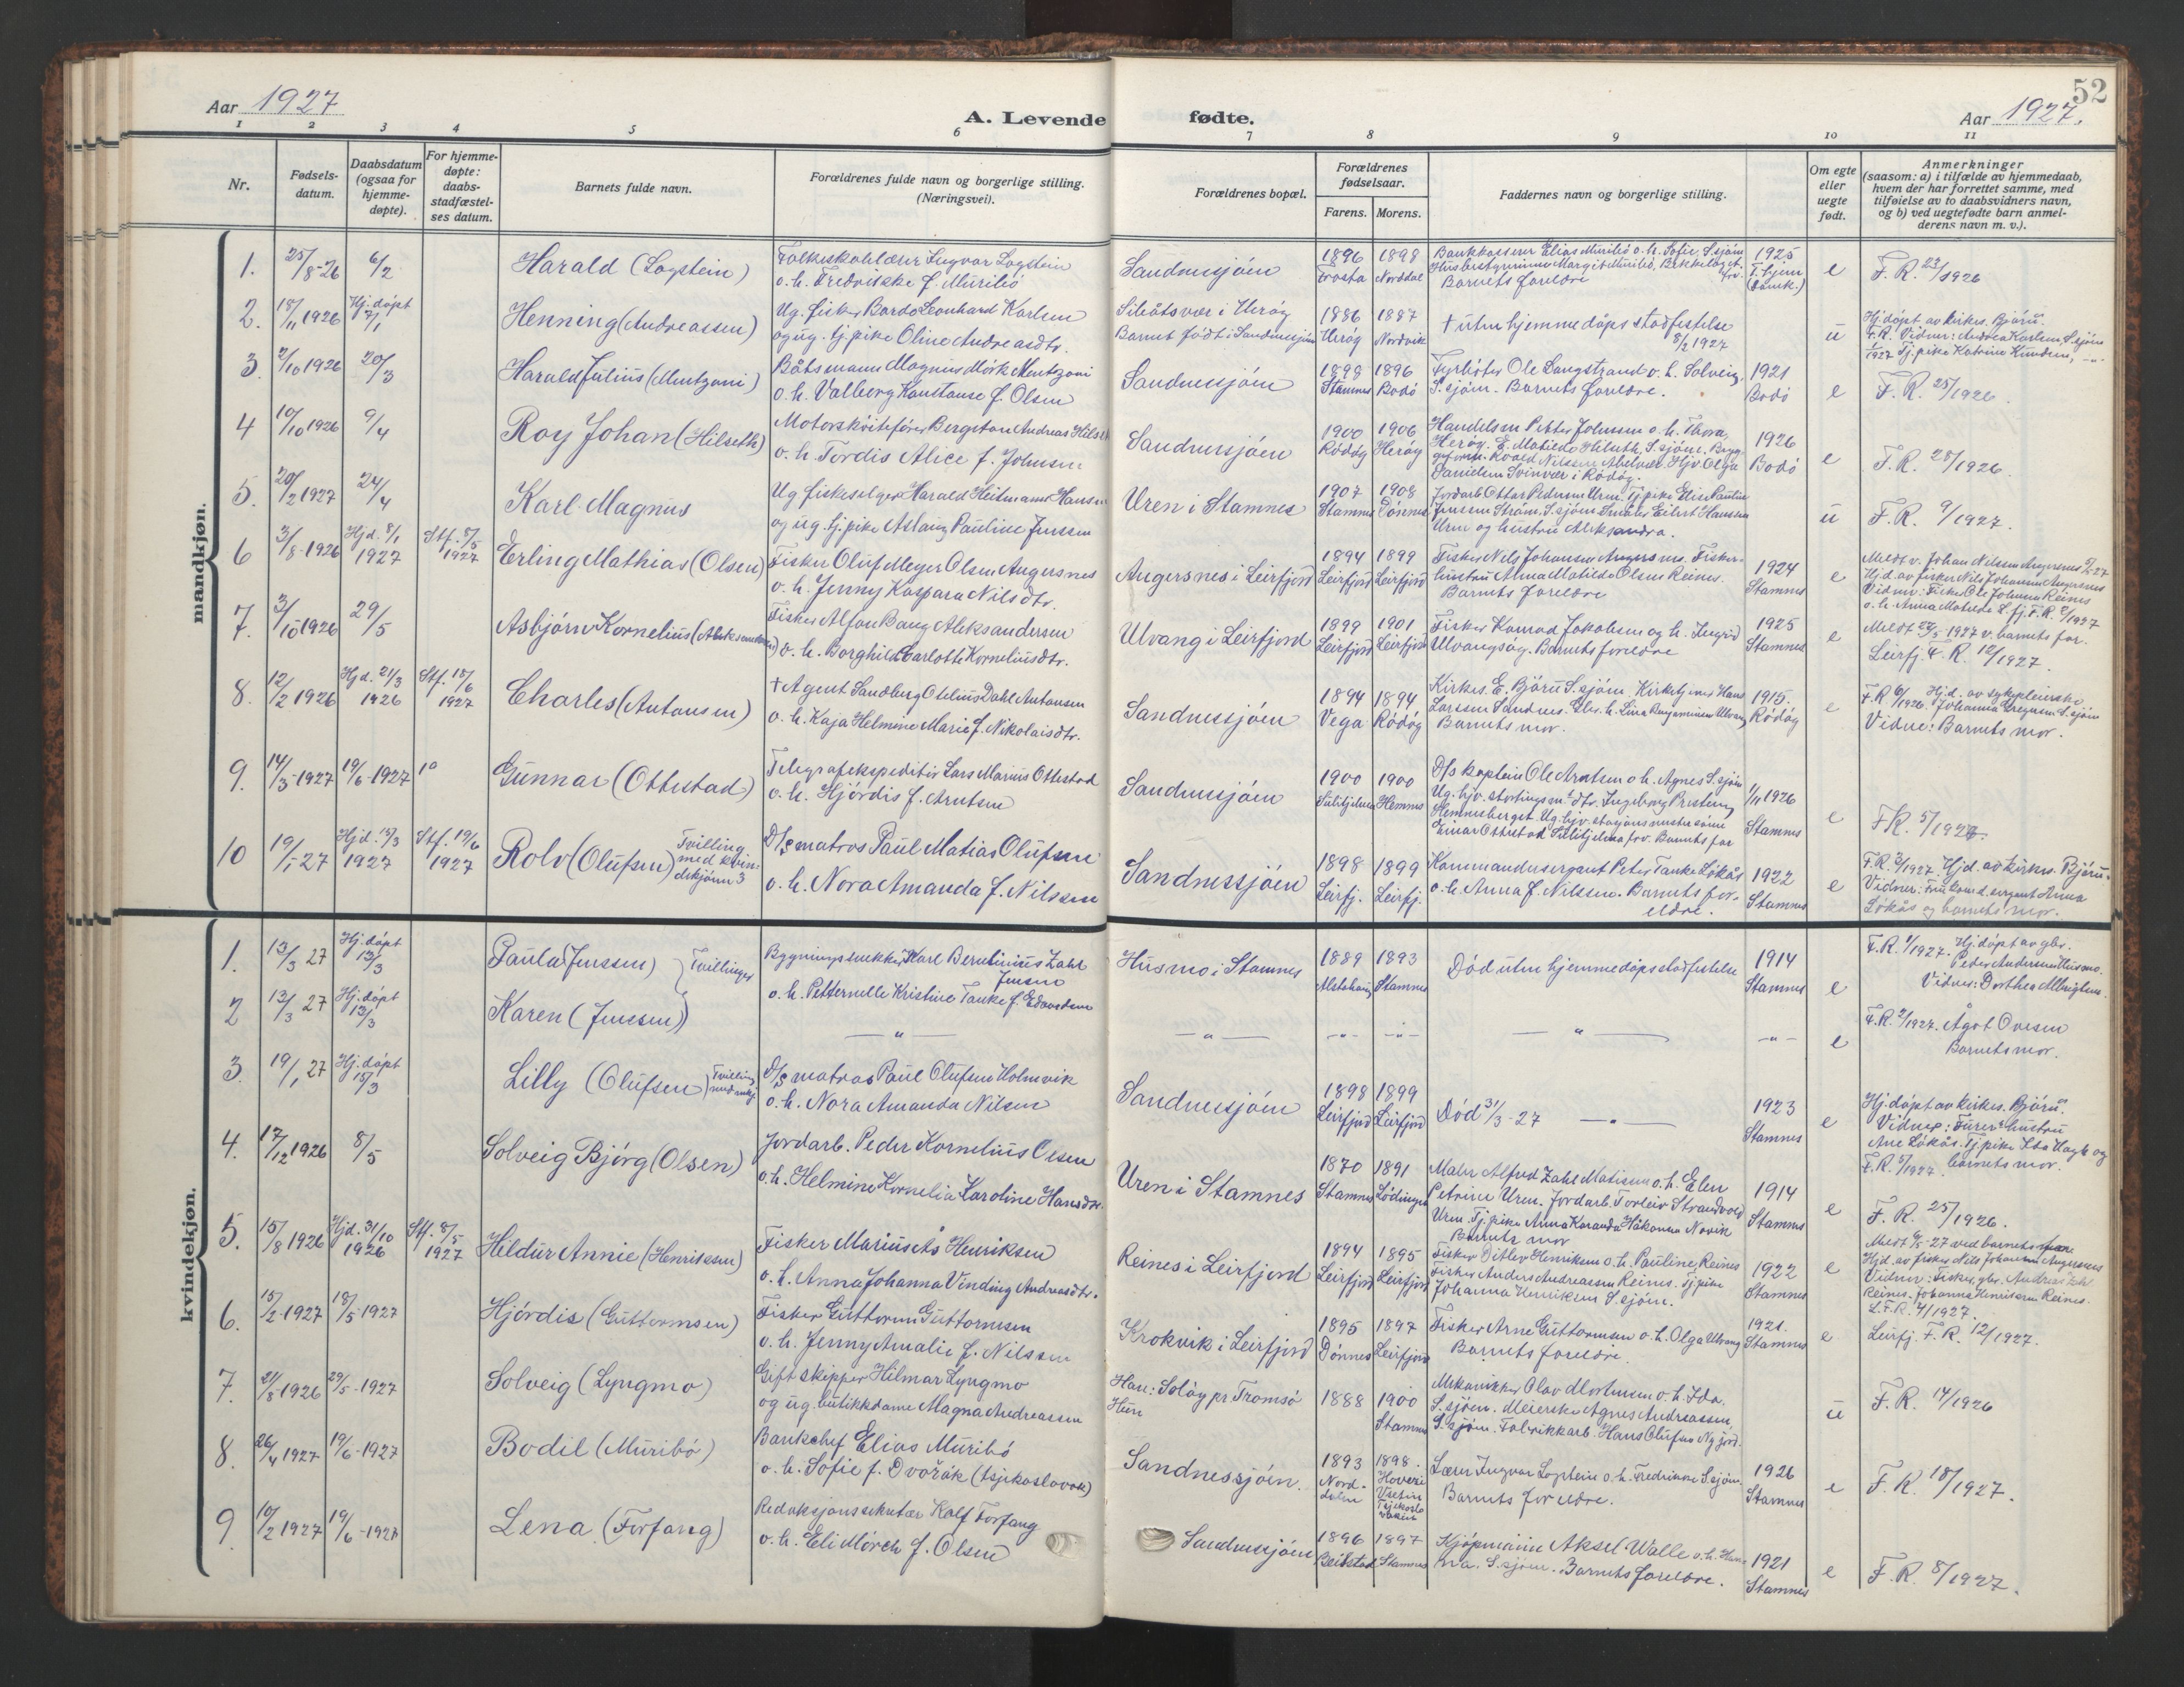 52
Aar 1927
A. Levende fødte.
Aar 1927.
1 2 3 4 5 6 7 8 9 10 11
Nr.
Fødsels-
datum.
Daabsdatum
(ogsaa for
hjemme-
døpte).
For hjemme-
døpte:
daabs-
stadfæstel-
ses datum.
Barnets fulde navn.
Forældrenes fulde navn og borgerlige stilling.
(Næringsvei).
Forældrenes bopæl.
Forældrenes
fødselsaar.
Farens. Morens.
Faddernes navn og borgerlige stilling.
Om egte
eller
uegte
født.
Anmerkninger
(saasom: a) i tilfælde av hjemmedaab,
hvem der har forrettet samme, med
tilføielse av to daabsvidners navn,
og b) ved uegtefødte barn anmel-
derens navn m. v.).
mandkjøn.
1. 25/8-26 6/2 Harald (Logstein)
Folkeskolelærer Ingvar Logstein
o. h. Fredrikke f. Muribö
Sandnessjöen
1896 Frosta 1898 Norddal
Bankkasserer Elias Muribö o. h. Sofie S.sjöen
Barnets foreldre
1925
e
F. R. 23/1926
2. 18/11 1926 Hj. döpt 7/1 Henning (Andreassen)
Ug. fisker Bardo Leonhard Karlsen
og ug. tj. pike Oline Andreasdtr.
i Heröy
Barnet födt i Sandnessjöen
1886 Heröy 1887 Nordvik
† uten hjemmedåps stadfestelse
8/2 1927
u
Hj. döpt av kirkes. Björu.
F.R. 1/1927 Vidner: Andrea Karlsen, S.sjöen
Tj. pike Katrine Knudsen, -"-
3. 2/10 1926 20/3 Harald Julius (Mentzoni)
Båtsmann Magnus Mörk Mentzoni
o. h. Valborg Konstanse f. Olsen
Sandnessjöen
1898 Stamnes 1896 Bodö
Fyrböter Ole Langstrand o. h. Solveig,
S.sjöen. Barnets foreldre.
1921 Bodö
e
F. R. 25/1926.
4 19/10 1926 9/4 Roy Johan (Hilseth)
Motorsköitefører Bergiton Andreas Hilseth
o. h. Tordis Alice f. Johnsen
Sandnessjöen
1900 Rödöy 1906 Heröy
Handelsm. Petter Johnsen o. h. Thora,
Heröy. E. Matilde Hilseth, S.sjöen.
Danielsen Svinvær i Rödöy.
1926 Bodö
e
F. R. 28/1926.
5. 20/2 1927 24/4 Karl Magnus
Ug. fiskeselger Harald Heitmann Hansen
og ug. tj. pike Aslaug Pauline Jenssen
Uren i Stamnes
1907 Stamnes 1908 Dönnes
Jordarb. Ottar Pedersen Uren. Tj. pike Elise Pauline
Jenssen Ström, S.sjöen. Eilert Hanssen
Uren og hustru Aleksandra.
u
F. R. 9/1927.
6 3/8-1926 Hjd. 8/1 1927 Stf. 8/5 1927 Erling Mathias (Olsen)
Fisker Oluf Meyer Olsen Angersnes
o. h. Jenny Kaspara Nilsdtr.
Angersnes i Leirfjord
1894 Leirfjord 1899 Leirfjord
Fisker Nils Johansen Angersnes. Fisker-
hustru Anna Matilde Olsen Reines.
Barnets foreldre
1924 Stamnes
e
Meldt v. Johan Nilsen Angersnes
Hjd. av fisker Nils Johansen Angersnes
Vidner: Fisker Ole Johnsen Reines
o. h. Anna Matilde. L.fj. F.R. 2/1927
7. 3/10 1926 29/5 Asbjörn Kornelius (Aleksandersen)
Fisker Alfon Bang Aleksandersen
o. h. Borghild Carlotte Korneliusdtr.
Ulvang i Leirfjord
1899 Leirfjord 1901 Leirfjord
Fisker Konrad Jakobsen og h. Ingrid
Ulvangsöy. Barnets foreldre
1925 Stamnes
e
Meldt 24/5 1927 v. barnets far.
Leirfj. F. R. 12/1927.
8. 12/2 1926 Hjd. 21/3 1926 Stf. 18/6 1927 Charles (Antonsen)
† Agent Sandberg Otelius Dahl Antonsen
o. h. Kaja Helmine Marie f. Nikolaisdtr.
Sandnessjöen
1894 Vega 1894 Rödöy
Kirkes. E. Björu S.sjöen. Kirketjener Hans
Larssen Sandnes. Lina Benjaminsen Ulvang
Barnets mor.
1915. Rödöy
e
F. R. 6/1926. Hjd. av sykepleierske
Johanna Gregusen S.sjöen
Vidne: Barnets mor.
9. 14/3-1927 19/6-1927 Gunnar (Ottestad)
Telegrafekspeditör Lars Marius Ottestad
o. h. Hjördis f. Arntsen
Sandnessjöen
1900 Sulitjelma 1900 Hemnes
D/s kaptein Ole Arntsen o. h. Agnes S.sjöen
Ug. hjv. stortingsm. dtr. Ingeborg
Hemnesberget. Ug. hjv.
Einar Ottestad Sulitjelma frv. Barnets far
1/11 1926 Stamnes
e
F.R. 5/1927.
10 19/1-27 Hjd. 15/3 1927 Stf. 19/6 1927 Rolv (Olufsen) Tvilling
med kvin-
dekjönn 3
D/s matros Paul Matias Olufsen
o. h. Nora Amanda f. Nilssen
Sandnessjöen
1898 Leirfj. 1899 Leirfj.
Kommandersergant Peter Tanke Lökås
o. h. Anna f. Nilssen. Barnets for-
eldre.
1922 Stamnes
e
F.R. 3/1927. Hjd. av kirkes. Björu.
Vidner: Fru komd. sergant Anna
Lökås og barnets mor.
kvindekjøn.
1. 13/3 27 Hj. döpt 13/3 Paula (Jenssen) Tvillinger
Bygningssnekker Karl Berntinius Zahl
Jensen
o. h. Petternelle Kristine Tanke f. Edvardsen
Husmo i Stamnes
1889 Alstahaug 1893 Stamnes
Död uten hjemmedåps stadfestelse
1914 Stamnes
e
F. R. 1/1927. Hj. döpt av gbr.
Peder Andersen Husmo.
Vidner: Dorthea Albrigtsen.
2 13/3 27 Hj. döpt 13/3 Karen (Jenssen)
— " —
-"- -"- -"- — " — -"-
e
F. R. 2/1927. Ågot Ovesen
Barnets mor.
3. 19/1 27 Hj. döpt 15/3 Lilly (Olufsen) Tvilling
D/s matros Paul Olufsen Holmvik
o. h. Nora Amanda Nilsen
Sandnessjöen
1898 Leirfjord 1899 Leirfjord
Död 31/3-27 —"—
1923 Stamnes
e
Hj. döpt av kirkes. Björu.
Vidner: Furer hustru
Ane Lökås. Tj. pike Ida Hagh og
F. R. 5/1927. barnets mor.
4. 17/12 1926 8/5 Solveig Bjørg (Olsen)
Jordarb. Peder Kornelius Olsen
o. h. Helmine Kornelia Karoline Hansdtr.
Uren i Stamnes
1870 Stamnes 1891 Lödingen
Maler Alfred Zahl Matisen o. h. Elen
Petrine Uren. Jordarb. Torleiv Strandvold
Uren. Tj. pike Anna Karanda Håkonsen Novik
Barnets mor
1914 Stamnes
e
F. R. 25/1926.
5. 15/8 1926 Hjd. 31/10 1926 Stf. 8/5 1927 Hildur Annie (Henriksen)
Fisker Marius Ås Henriksen
o. h. Anna Johanna Vinding Andreasdtr.
Reines i Leirfjord
1894 Leirfjord 1895 Leirfjord
Fisker Ditlev Henriksen o. h. Pauline Reines
Fisker Anders Andreassen Reines. Tj. pike
Johanna Henriksen S.sjöen.
1922 Stamnes
e
Meldt 9/5-27 ved barnets
Hjd. av fisker Nils Johansen Angersnes
Vidner: Fisker, gbr. Andreas Zahl
Reines. Johanna Henriksen Reines.
L. F. R. 4/1927.
6. 15/2-1927 18/5-1927 Hjördis (Guttormsen)
Fisker Guttorm Guttormsen
o. h. Jenny Amalie f. Nilssen
Krokvik i Leirfjord
1895 Dönnes 1897 Leirfjord
Fisker Arne Guttormsen o. h. Olga Ulvang
Barnets foreldre.
1921. Stamnes
e
Leirfj. F. R. 12/1927.
7. 21/8 1926 29/5-1927 Solveig (Lyngmo)
Gift skipper Hilmar Lyngmo
og ug. butikkdame Magna Andreassen
Han: Solöy pr Tromsö
Hun
1888 1900 Stamnes
Mekaniker Olav Mortensen o. h. Ida,
S.sjöen. Meierske Agnes Andreassen,
S.sjöen. Fabrikkarb. Hans Olufsen Nyjord.
u
F. R. 14/1926
8. 26/4 1927 19/6-1927 Bodil (Muribö)
Bankchef Elias Muribö
o. h. Sofie f. Dvořák (tsjekoslovak)
Sandnessjöen.
1893 Nord-
dalen 1898. Hovezi
Vsetin
Tsjekoslo
vakiet
Lærer Ingvar Logstein o. h. Fredrikke S.sjöen.
Barnets foreldre.
1926 Stamnes
e
F. R. 18/1927.
9. 10/2 1927 19/6-1927 Lena (Forfang)
Redaksjonssekretær Rolf Forfang
o. h. Eli Mörch f. Olsen
Sandnessjöen
1896 Beitstad 1897 Stamnes
Kjöpmann Aksel Walle o. h. Han-
na. S.sjöen. Barnets foreldre.
1921 Stamnes
e
F. R. 8/1927.